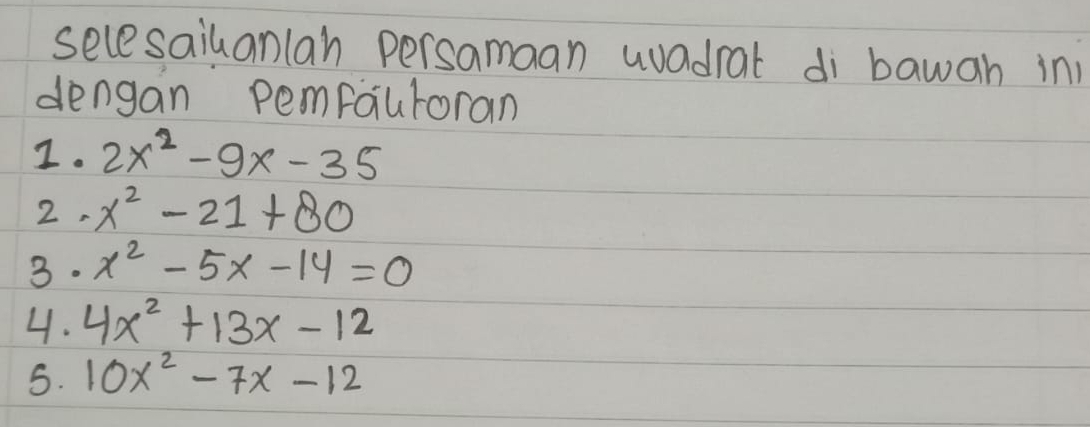 selesaikanlah Persamaan kuadrat di bawah ini
dengan Pemfaktoran
1. 2x² - 9x - 35
2. x² - 21 + 80
3. x² - 5x - 14 = 0
4. 4x² + 13x - 12
5. 10x² - 7x - 12